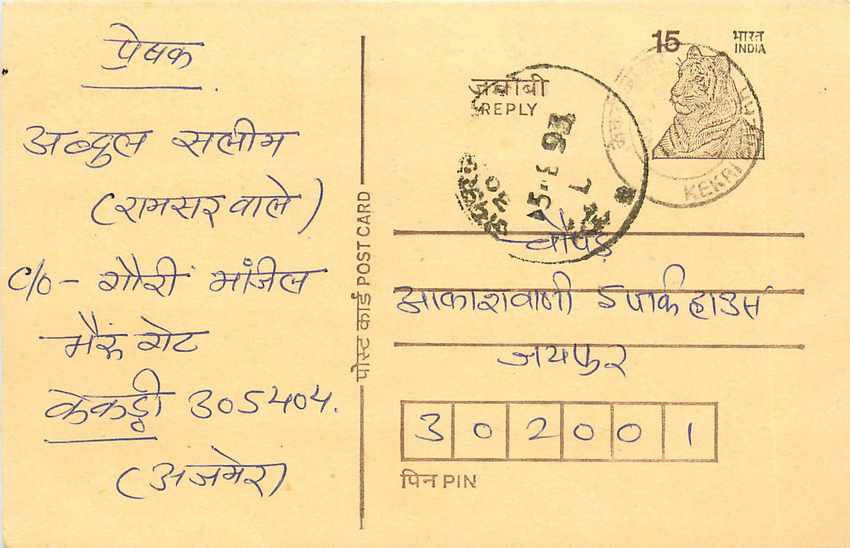 प्रेषक
अब्दुल सलीम
(रामसर वाले)
c/o - गौरी मंजिल
भैरूं गेट
केकड़ी 305404.
(अजमेर)
पोस्ट कार्ड POST CARD
15
भारत
INDIA
जवाबी
REPLY
KEKRI
चौपड़
आकाशवाणी 5 पार्क हाउस
जयपुर
302001
पिन PIN